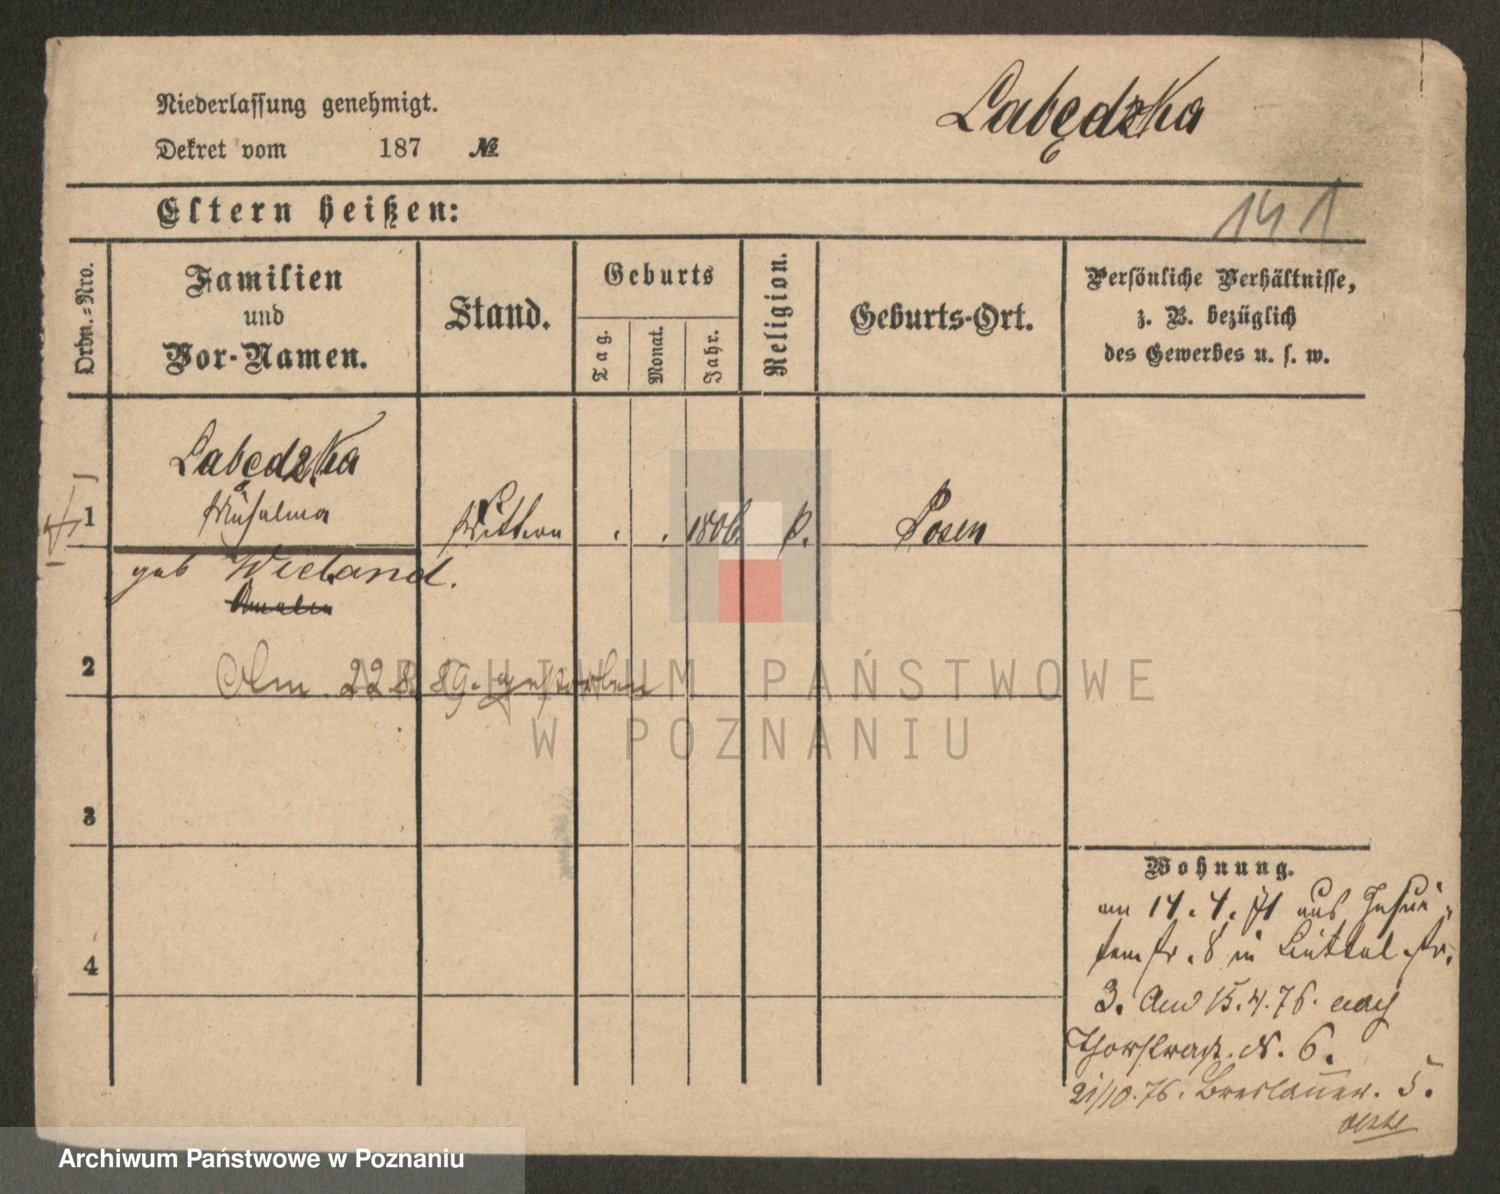 Niederlassung genehmigt.
Łabędzka
Dekret vom 187 №
Eltern heißen:
141
Ordn.-Nro.
Familien
und
Vor-Namen.
Stand.
Geburts
Tag.
Monat.
Jahr.
Religion.
Geburts-Ort.
Persönliche Verhältnisse,
z. B. bezüglich
des Gewerbes u. s. w.
Łabędzka
1 Wittwe . . 1806 k. Posen
geb Wieland.
2 Am 22 8. 89. gestorben
ARCHIWUM PAŃSTWOWE
W POZNANIU
3
4
Wohnung.
am 14. 4. 71 aus Jesui-
tenstr. 8 in Büttelstr.
3. And 15. 4. 76. nach
Thorstraße N. 6.
21/10. 76. Breslauer. 5.
Archiwum Państwowe w Poznaniu